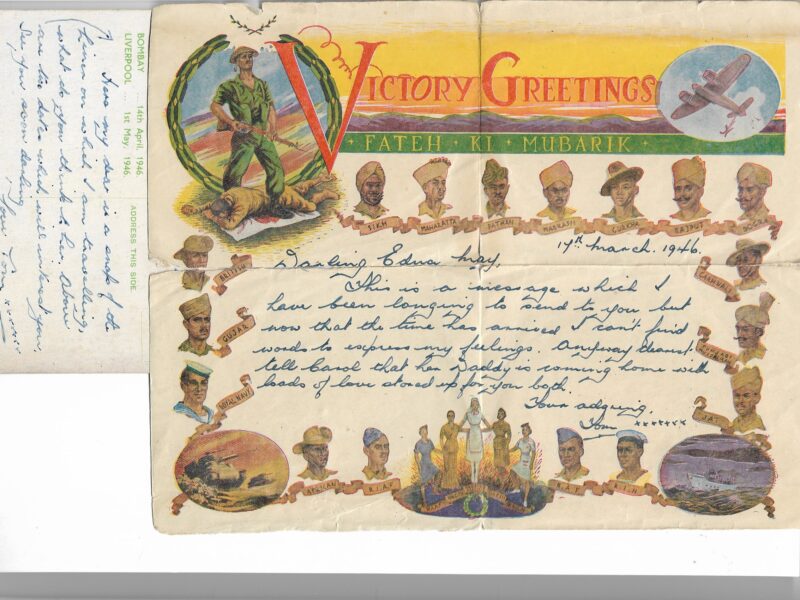 VICTORY GREETINGS
FATEH · KI · MUBARIK
SIKH
MAHARATTA
PATHAN
MADRASSI
GURKHA
RAJPUT
DOGRA
17th March. 1946.
Darling Edna May,
This is a message which I
have been longing to send to you but
now that the time has arrived I can't find
words to express my feelings. Anyway dearest
tell Carol that her Daddy is coming home with
loads of love stored up for you both.
Your adoring,
Tom xxxxxxx
BRITISH
GUJAR
ROYAL NAVY
GARHWAL
JAT
AFRICAN
R.I.A.F
R.A.F
R.I.N
BOMBAY 14th April, 1946.
LIVERPOOL 1st May, 1946.
ADDRESS THIS SIDE.
Here my dear is a snap of the
liner on which I am travelling,
what do you think to her. Above
are the dates which will interest you.
See you soon darling,
Your Tom xxxxxx